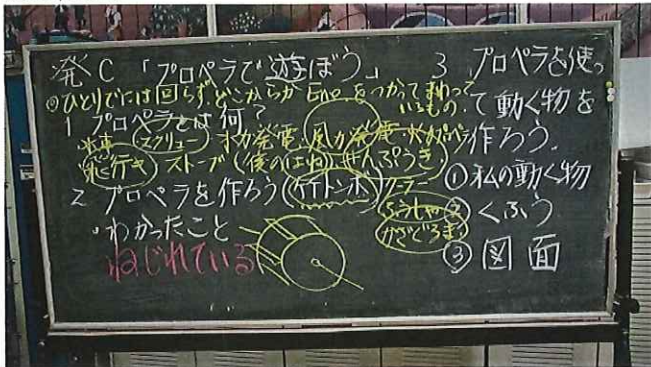 発C 「プロペラで遊ぼう」
◎ひとりでには回らず、どこからか Ene をつかって まわっているもの。
1 プロペラとは何?
水車 スクリュー 水力発電・風力発電・火力
飛行き ストーブ(後のはね) せんぷうき
2 プロペラを作ろう(竹トンボ) クーラー
ふうしゃ
かざぐるま
・わかったこと
ねじれている
3 プロペラを使って動く物を作ろう。
①私の動く物
②くふう
③図面